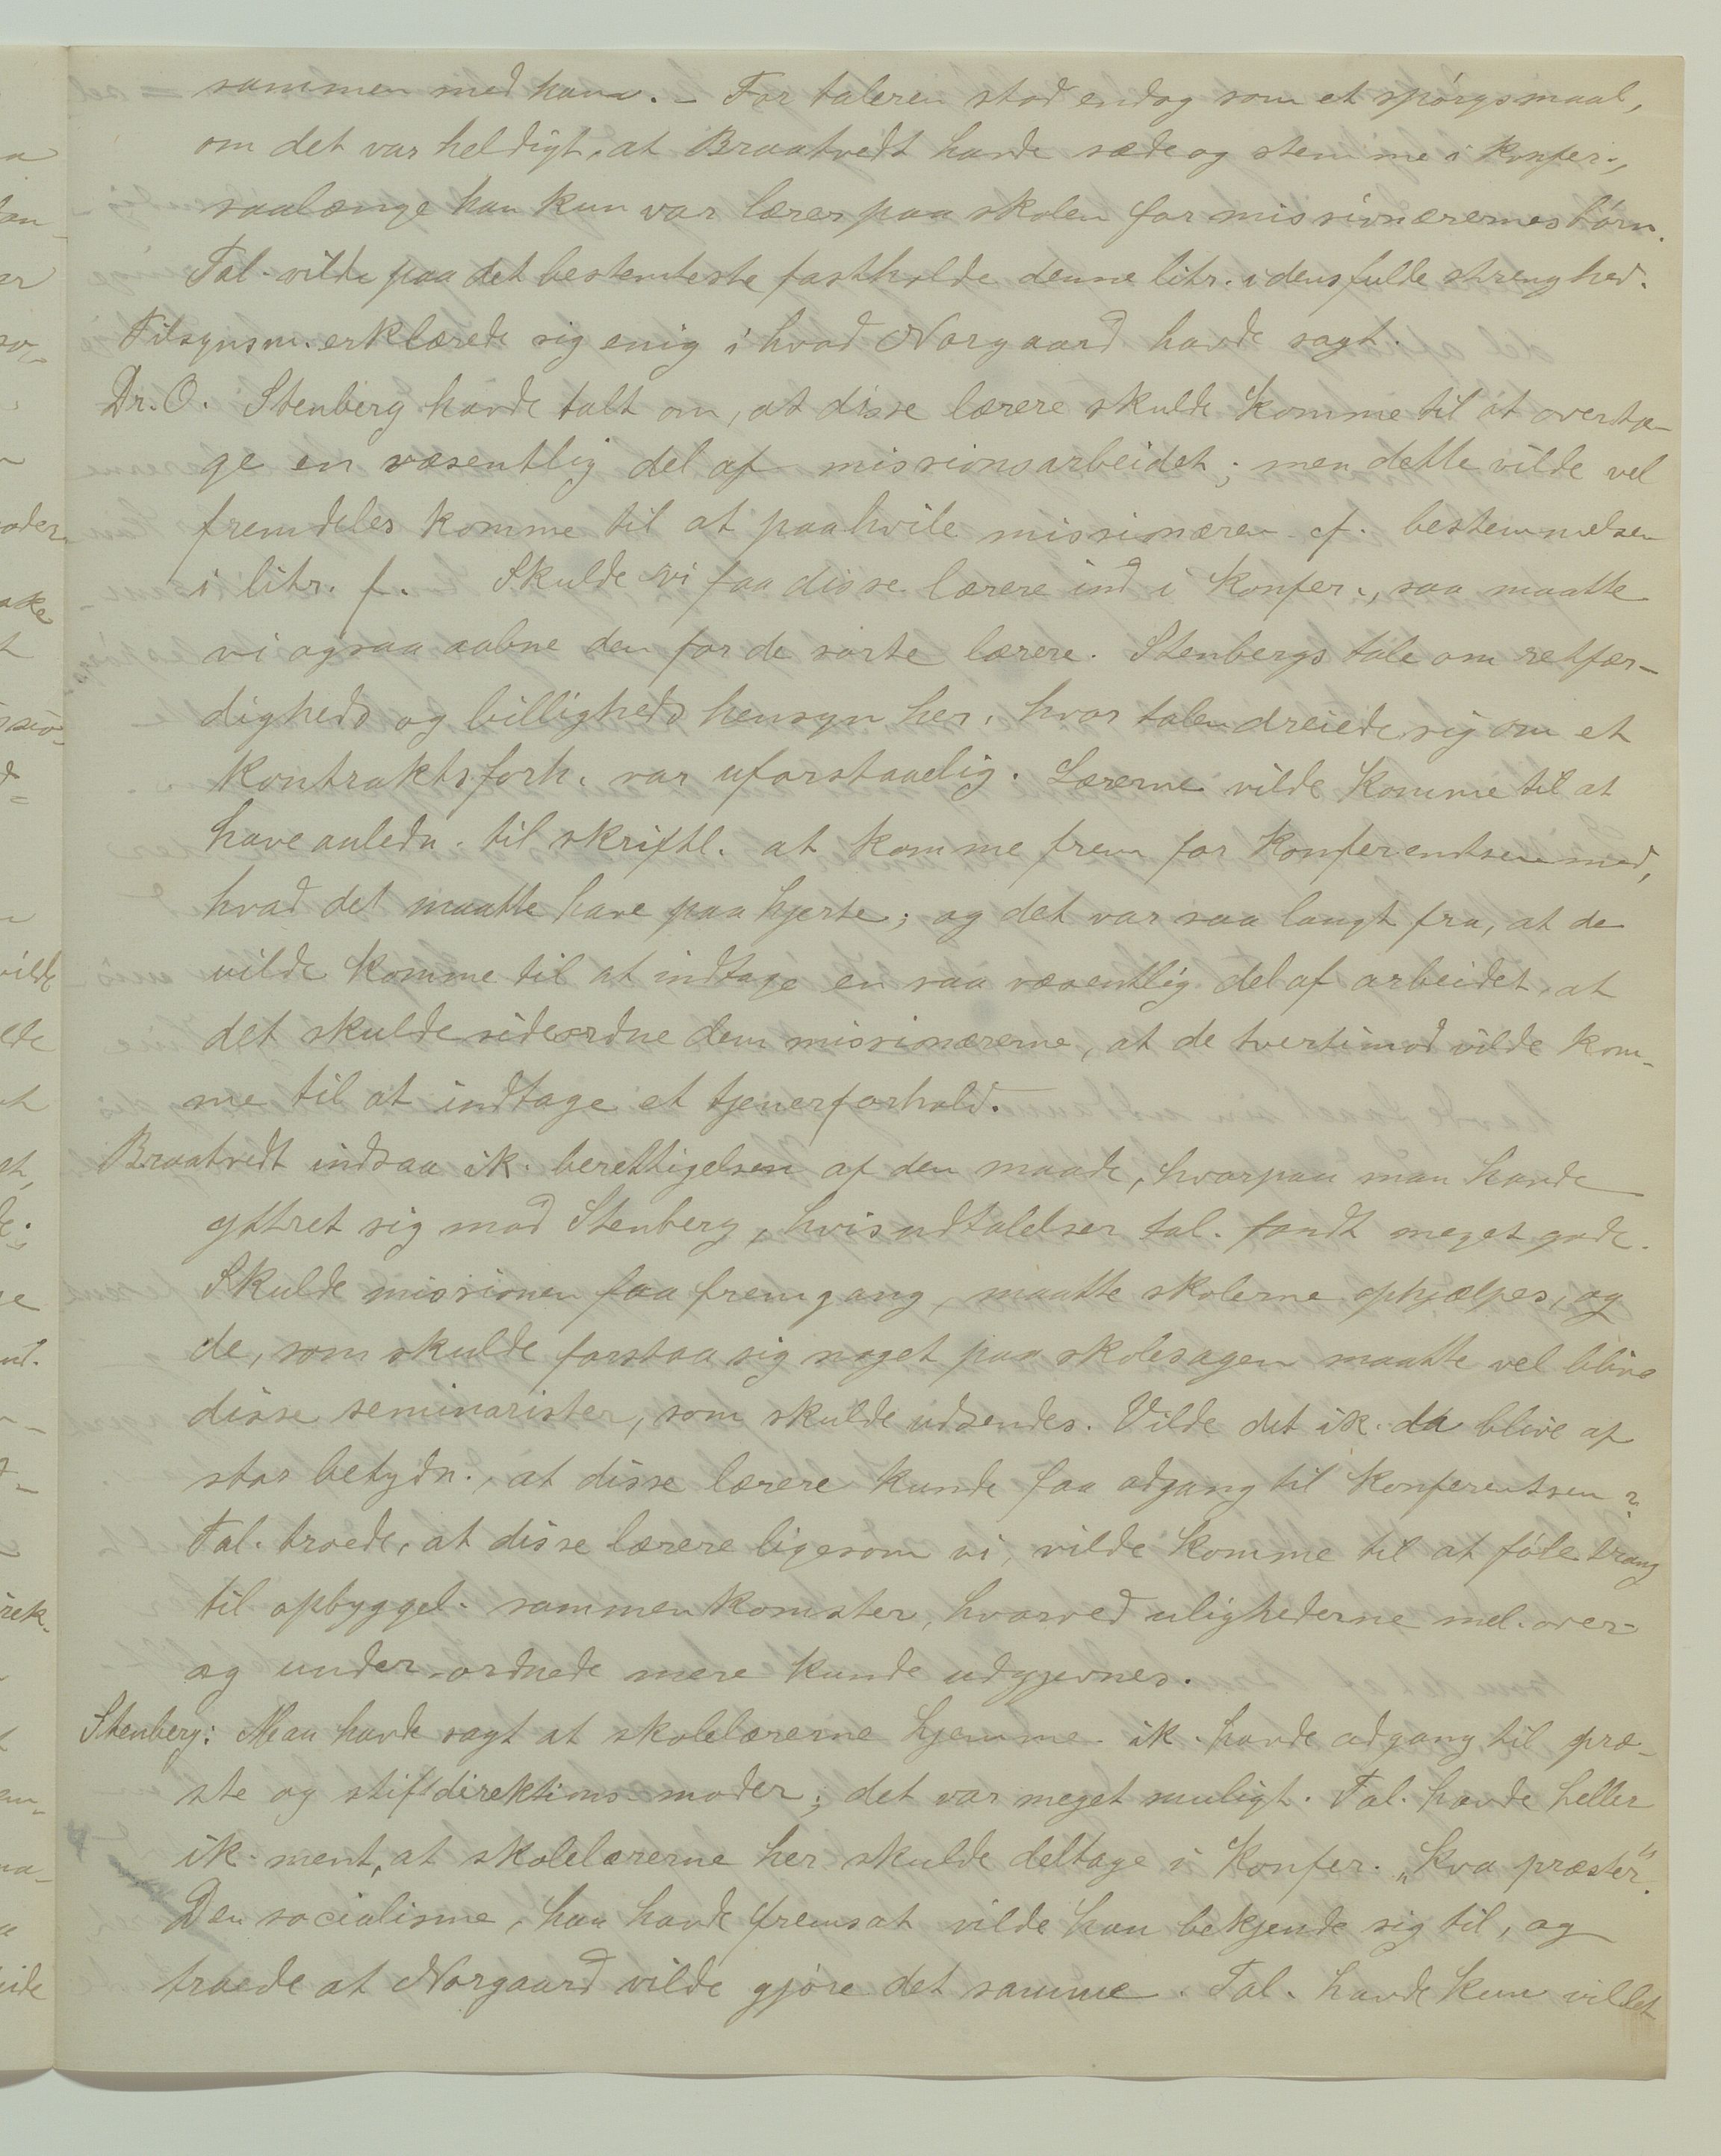 sammen med ham. – For taleren stod endog som et spórgsmaal,
om det var heldigt, at Braatvedt havde sæde og stemme i Konfer.,
saalænge han kun var lærer paa skolen for missionærernes børn.
Tal. vilde paa det bestemteste fastholde denne litr. i dens fulde strenghed.
Tilsynsm. erklærede sig enig i hvad Norgaard havde sagt.
Dr. O. Stenberg havde talt om, at disse lærere skulde komme til at overta-
ge en væsentlig del af missionsarbeidet; men dette vilde vel
fremdeles komme til at paahvile missionæren cf. bestemmelsen
i litr. f. Skulde vi faa disse lærere ind i Konfer., saa maatte
vi ogsaa aabne den for de sorte lærere. Stenbergs tale om retfær-
digheds og billigheds hensyn her, hvor talen dreiede sig om et
Kontraktsforh. var uforstaaelig. Lærerne vilde komme til at
have anledn. til skriftl. at komme frem for Konferentsen med,
hvad det maatte have paa hjerte; og det var saa langt fra, at de
vilde komme til at indtage en saa væsentlig del af arbeidet, at
det skulde sideordne dem missionærerne, at de tvertimod vilde kom-
me til at indtage et tjenerforhold.
Braatvedt indsaa ik. berettigelsen af den maade, hvorpaa man havde
yttret sig mod Stenberg, hvis udtalelser tal. fandt meget gode.
Skulde missionen faa fremgang, maatte skolerne ophjælpes, og
de, som skulde forstaa sig noget paa skolesagen maatte vel blive
disse seminarister, som skulde udsendes. Vilde det ik. da blive af
stor betydn., at disse lærere kunde faa adgang til Konferentsen?
Tal. troede, at disse lærere ligesom vi, vilde komme til at fóle trang
til opbyggel. sammenkomster, hvorved ulighederne mel. over-
og under-ordnede mere kunde udgjevnes.
Stenberg: Man havde sagt at skolelærerne hjemme ik. havde adgang til præ-
ste og stiftdirektions-moder; det var meget muligt. Tal. havde heller
ik. ment, at skolelærerne her skulde deltage i Konfer. „kva præster“.
Den socialisme, han havde fremsat vilde han bekjende sig til, og
troede at Norgaard vilde gjóre det samme. Tal. havde kun villet